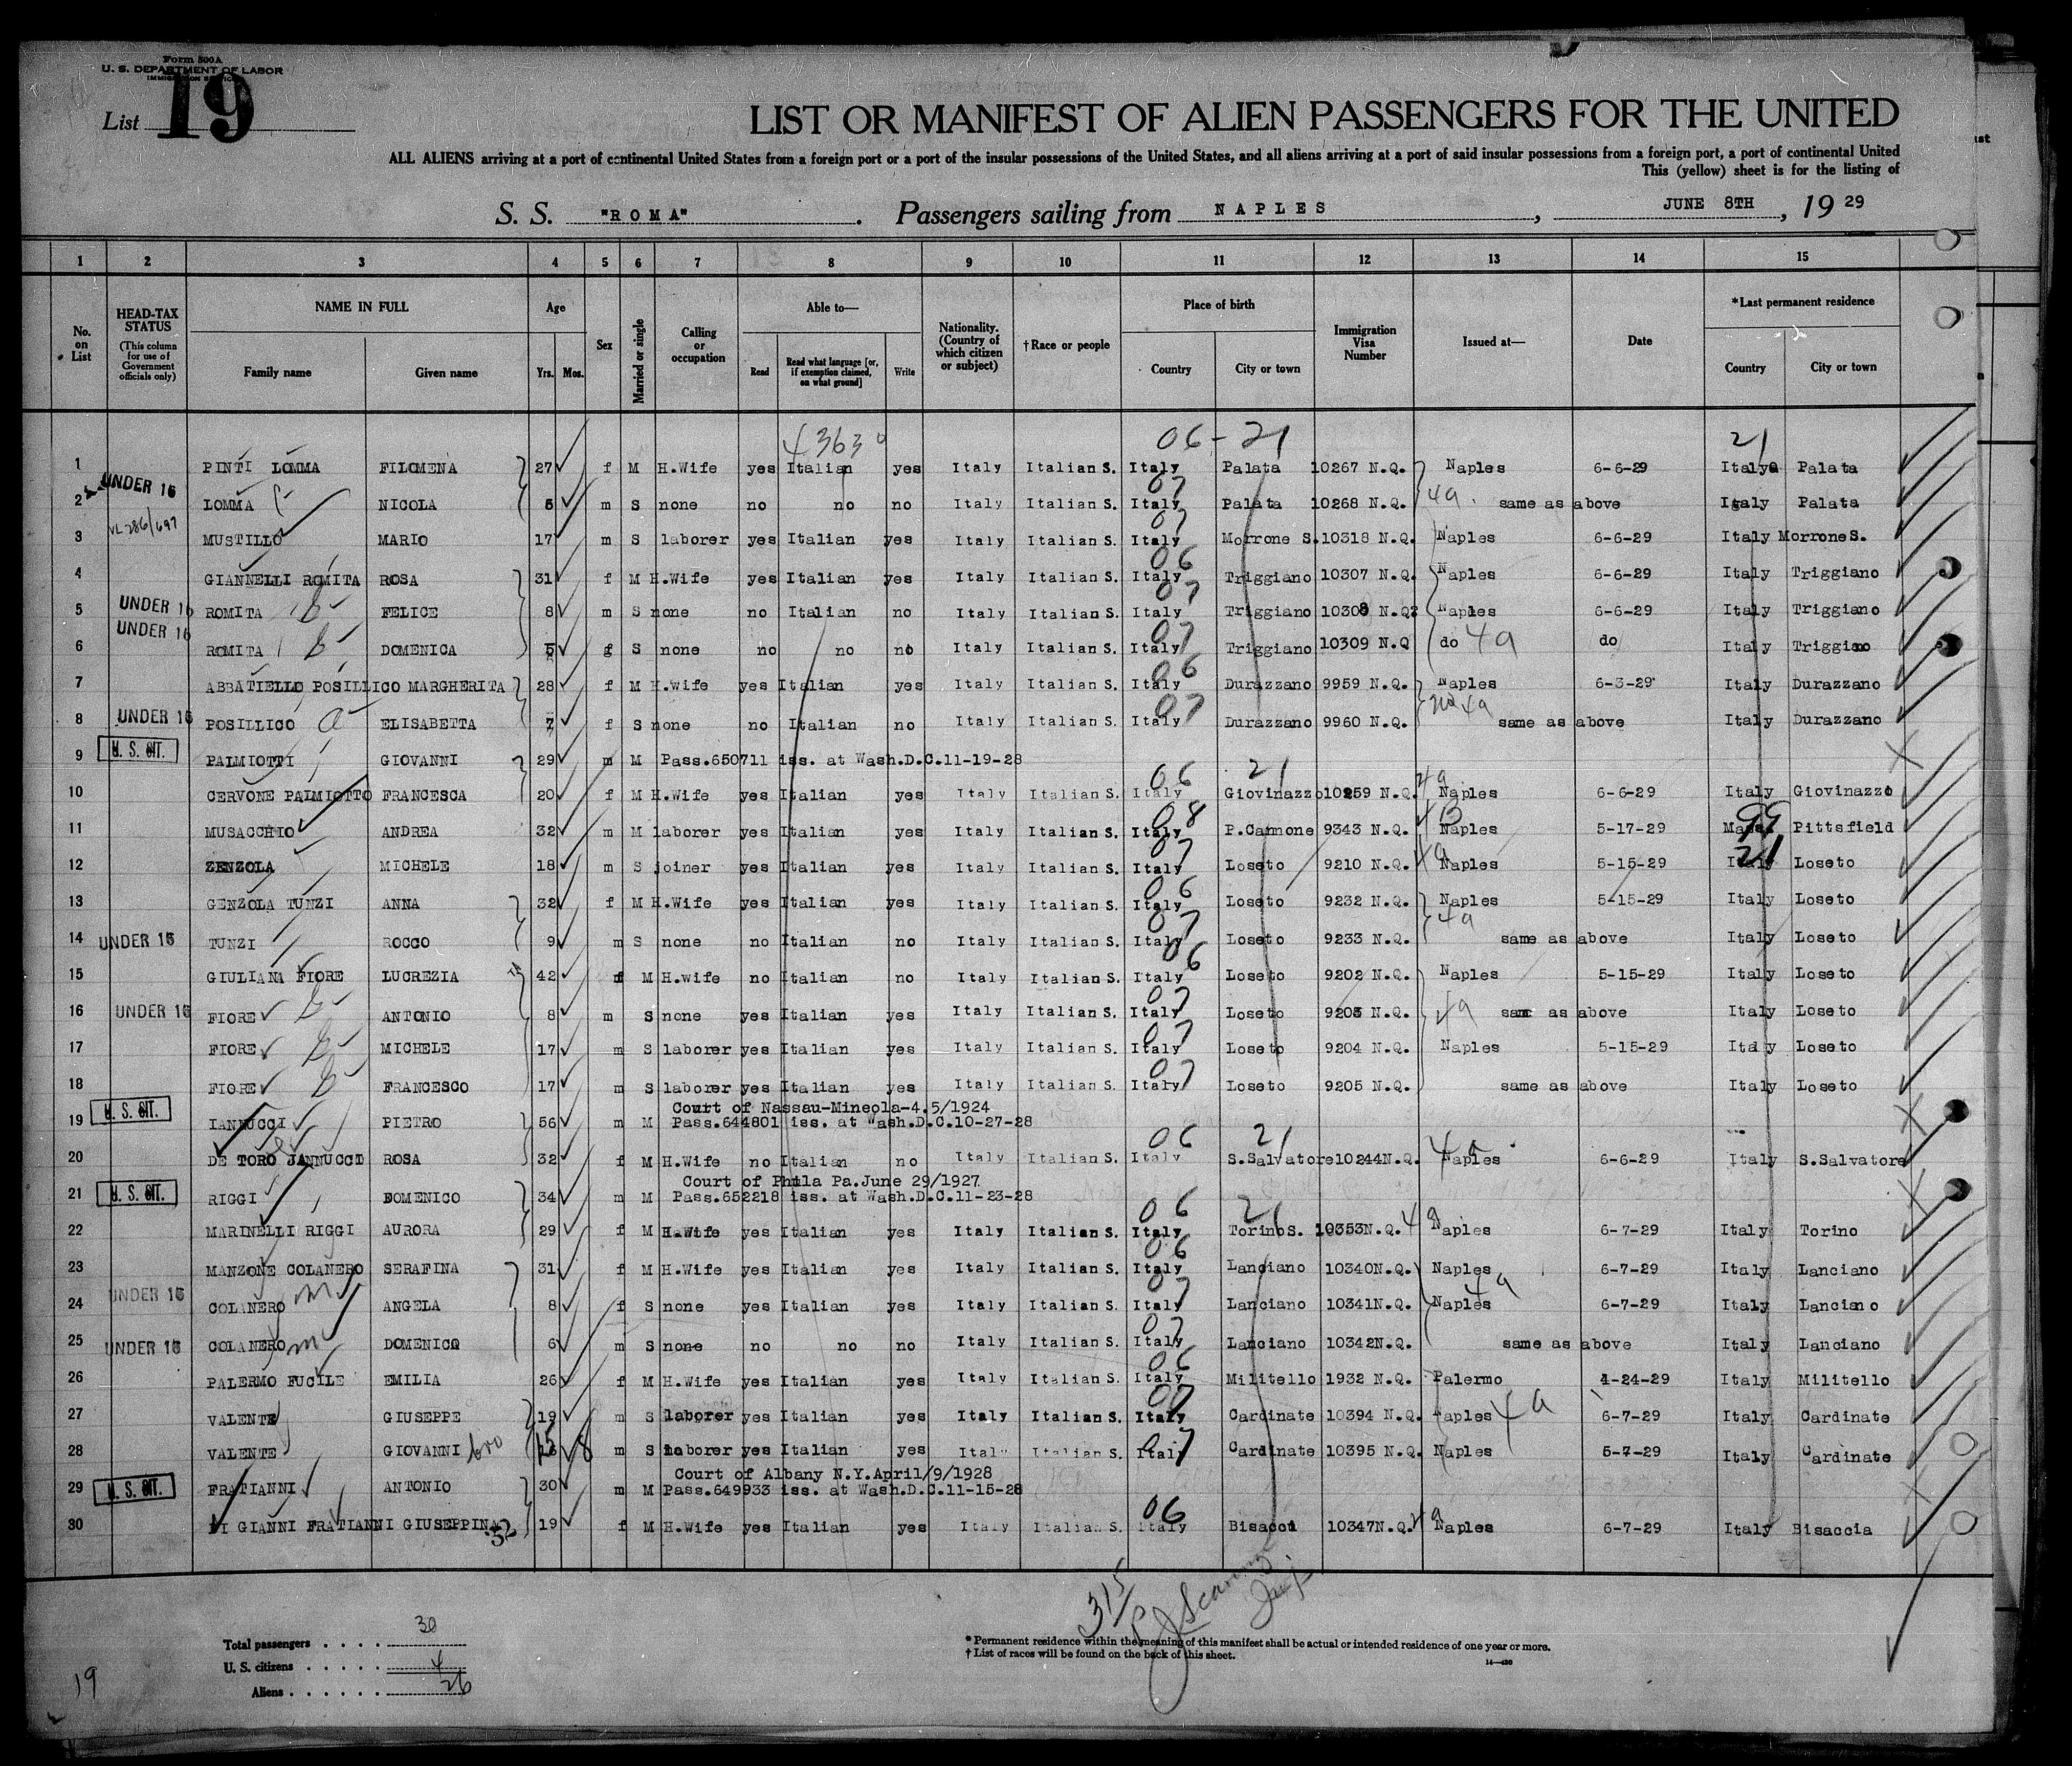 Form 500A
U. S. DEPARTMENT OF LABOR
IMMIGRATION SERVICE
List 19
LIST OR MANIFEST OF ALIEN PASSENGERS FOR THE UNITED
ALL ALIENS arriving at a port of continental United States from a foreign port or a port of the insular possessions of the United States, and all aliens arriving at a port of said insular possessions from a foreign port, a port of continental United
This (yellow) sheet is for the listing of
S. S. "ROMA". Passengers sailing from NAPLES, JUNE 8TH, 19 29
1 2 3 4 5 6 7 8 9 10 11 12 13 14 15
No. on List
HEAD-TAX STATUS (This column for use of Government officials only)
NAME IN FULL Family name Given name
Age Yrs. Mos.
Sex
Married or single
Calling or occupation
Able to— Read Read what language [or, if exemption claimed, on what ground] Write
Nationality. (Country of which citizen or subject)
†Race or people
Place of birth Country City or town
Immigration Visa Number
Issued at—
Date
*Last permanent residence Country City or town
4363 06-21 21
1 PINTI LOMMA FILOMENA 27 f M H.Wife yes Italian yes Italy Italian S. Italy Palata 10267 N.Q. Naples 6-6-29 Italy Palata
2 UNDER 16 LOMMA NICOLA 5 m S none no no no Italy Italian S. 07 Italy Palata 10268 N.Q. 4a same as above Italy Palata
3 MUSTILLO MARIO 17 m S laborer yes Italian yes Italy Italian S. 07 Italy Morrone S. 10318 N.Q. Naples 6-6-29 Italy Morrone S.
4 GIANNELLI ROMITA ROSA 31 f M H.Wife yes Italian yes Italy Italian S. 06 Italy Triggiano 10307 N.Q. Naples 6-6-29 Italy Triggiano
5 UNDER 16 ROMITA FELICE 8 m S none no Italian no Italy Italian S. 07 Italy Triggiano 10308 N.Q. Naples 6-6-29 Italy Triggiano
6 UNDER 16 ROMITA DOMENICA 5 f S none no no no Italy Italian S. 07 Italy Triggiano 10309 N.Q do 4a do Italy Triggiano
7 ABBATIELLO POSILLICO MARGHERITA 28 f M H.Wife yes Italian yes Italy Italian S. 06 Italy Durazzano 9959 N.Q. Naples 6-3-29 Italy Durazzano
8 UNDER 16 POSILLICO ELISABETTA 7 f S none no Italian no Italy Italian S. 07 Italy Durazzano 9960 N.Q. 4a same as above Italy Durazzano
9 U. S. CIT. PALMIOTTI GIOVANNI 29 m M Pass.650711 iss. at Wash.D.C.11-19-28
10 CERVONE PALMIOTTO FRANCESCA 20 f M H.Wife yes Italian yes Italy Italian S. 06 Italy 21 Giovinazzo 10259 N.Q. 4a Naples 6-6-29 Italy Giovinazzo
11 MUSACCHIO ANDREA 32 m M laborer yes Italian yes Italy Italian S. 08 Italy P.Cannone 9343 N.Q. Naples 5-17-29 Mass. 99 Pittsfield
12 ZENZOLA MICHELE 18 m S joiner yes Italian yes Italy Italian S. 07 Italy Loseto 9210 N.Q. 4a Naples 5-15-29 Italy 21 Loseto
13 GENZOLA TUNZI ANNA 32 f M H.Wife yes Italian yes Italy Italian S. 06 Italy Loseto 9232 N.Q. Naples 5-15-29 Italy Loseto
14 UNDER 16 TUNZI ROCCO 9 m S none no Italian no Italy Italian S. 07 Italy Loseto 9233 N.Q. 4a same as above Italy Loseto
15 GIULIANA FIORE LUCREZIA 42 f M H.Wife no Italian no Italy Italian S. 06 Italy Loseto 9202 N.Q. Naples 5-15-29 Italy Loseto
16 UNDER 16 FIORE ANTONIO 8 m S none yes Italian yes Italy Italian S. 07 Italy Loseto 9203 N.Q. 4a same as above Italy Loseto
17 FIORE MICHELE 17 m S laborer yes Italian yes Italy Italian S. 07 Italy Loseto 9204 N.Q. Naples 5-15-29 Italy Loseto
18 FIORE FRANCESCO 17 m S laborer yes Italian yes Italy Italian S. 07 Italy Loseto 9205 N.Q. same as above Italy Loseto
Court of Nassau-Mineola-4.5/1924
19 U. S. CIT. IANNUCCI PIETRO 56 m M Pass.644801 iss. at Wash.D.C.10-27-28
20 DE TORO JANNUCCI ROSA 32 f M H.Wife no Italian no Italy Italian S. 06 Italy 21 S.Salvatore 10244N.Q. 4a Naples 6-6-29 Italy S.Salvatore
Court of Phila Pa.June 29/1927
21 U. S. CIT. RIGGI DOMENICO 34 m M Pass.652218 iss. at Wash.D.C.11-23-28
22 MARINELLI RIGGI AURORA 29 f M H.Wife yes Italian yes Italy Italian S. 06 Italy 21 Torino S. 10353N.Q. 4a Naples 6-7-29 Italy Torino
23 MANZONE COLANERO SERAFINA 31 f M H.Wife yes Italian yes Italy Italian S. 06 Italy Lanciano 10340N.Q. Naples 6-7-29 Italy Lanciano
24 UNDER 16 COLANERO ANGELA 8 f S none yes Italian yes Italy Italian S. 07 Italy Lanciano 10341N.Q. Naples 4a 6-7-29 Italy Lanciano
25 UNDER 16 COLANERO DOMENICO 6 m S none no no no Italy Italian S. 07 Italy Lanciano 10342N.Q. same as above Italy Lanciano
26 PALERMO FUCILE EMILIA 26 f M H.Wife yes Italian yes Italy Italian S. 06 Italy Militello 1932 N.Q. Palermo 4-24-29 Italy Militello
27 VALENTE GIUSEPPE 19 m S laborer yes Italian yes Italy Italian S. 07 Italy Cardinate 10394 N.Q. Naples 4a 6-7-29 Italy Cardinate
28 VALENTE GIOVANNI bro 15 8 m S laborer yes Italian yes Italy Italian S. 07 Italy Cardinate 10395 N.Q. Naples 6-7-29 Italy Cardinate
Court of Albany N.Y.April/9/1928
29 U. S. CIT. FRATIANNI ANTONIO 30 m M Pass.649933 iss. at Wash.D.C.11-15-28
30 DI GIANNI FRATIANNI GIUSEPPINA 19 f M H.Wife yes Italian yes Italy Italian S. 06 Italy Bisacci 10347N.Q. Naples 6-7-29 Italy Bisaccia
32
315
Total passengers . . . . 30
U. S. citizens . . . . . 4
Aliens . . . . . . 26
19
* Permanent residence within the meaning of this manifest shall be actual or intended residence of one year or more.
† List of races will be found on the back of this sheet.